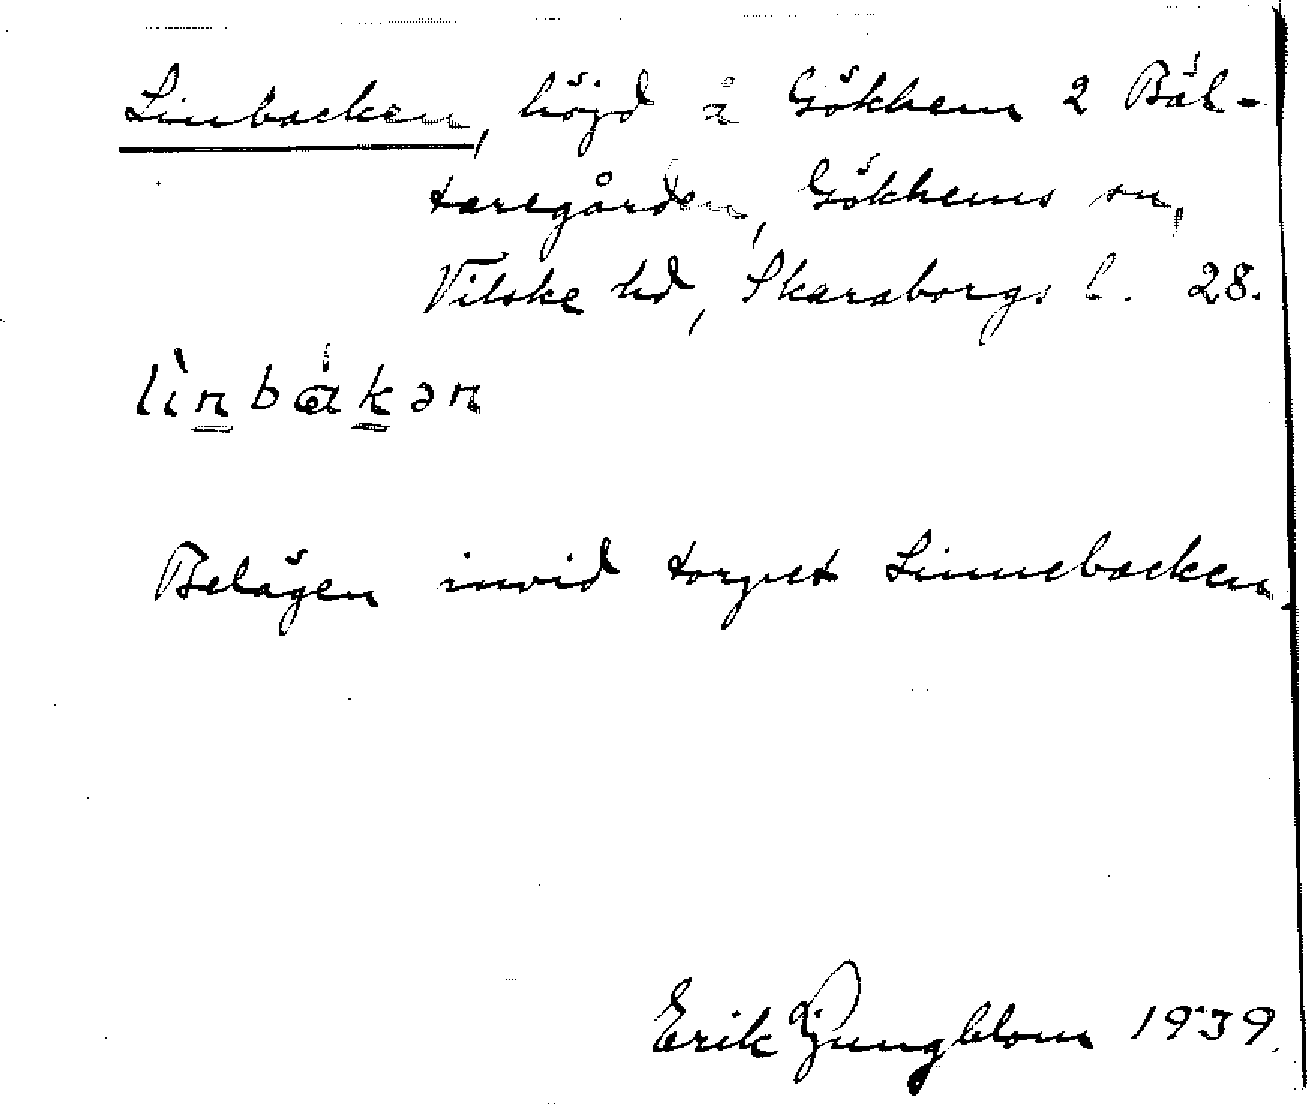 Linbacken, höjd å Gökhem 2 Bäl-
taregården, Gökhems sn,
Vilske hd, Skaraborgs l. 28.
lìnbákən
Belägen invid torpet Linnebacken.
Erik Ljungblom 1939.